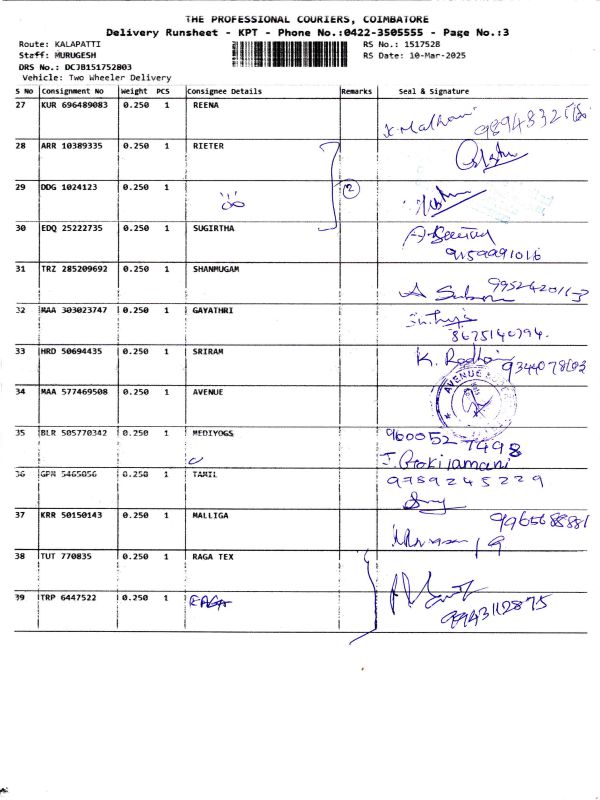 THE PROFESSIONAL COURIERS, COIMBATORE
Delivery Runsheet - KPT - Phone No.:0422-3505555 - Page No.:3
Route: KALAPATTI RS No.: 1517528
Staff: MURUGESH RS Date: 10-Mar-2025
DRS No.: DCJB151752803
Vehicle: Two Wheeler Delivery
S No Consignment No Weight PCS Consignee Details Remarks Seal & Signature
27 KUR 696489083 0.250 1 REENA
28 ARR 10389335 0.250 1 RIETER
29 DDG 1024123 0.250 1
2
30 EDQ 25222735 0.250 1 SUGIRTHA
9159991016
31 TRZ 285209692 0.250 1 SHANMUGAM
32 MAA 303023747 0.250 1 GAYATHRI
33 HRD 50694435 0.250 1 SRIRAM
34 MAA 577469508 0.250 1 AVENUE
AVENUE
35 BLR 505770342 0.250 1 MEDIYOGS
9600527498
36 GPM 5465056 0.250 1 TAMIL
9789245229
37 KRR 50150143 0.250 1 MALLIGA
38 TUT 770835 0.250 1 RAGA TEX
39 TRP 6447522 0.250 1 RAGA
9943112875